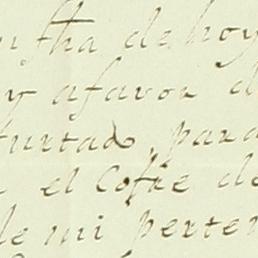 fha de hoy
y afavor d
hurtado, para
el Cofre de
de mi perten